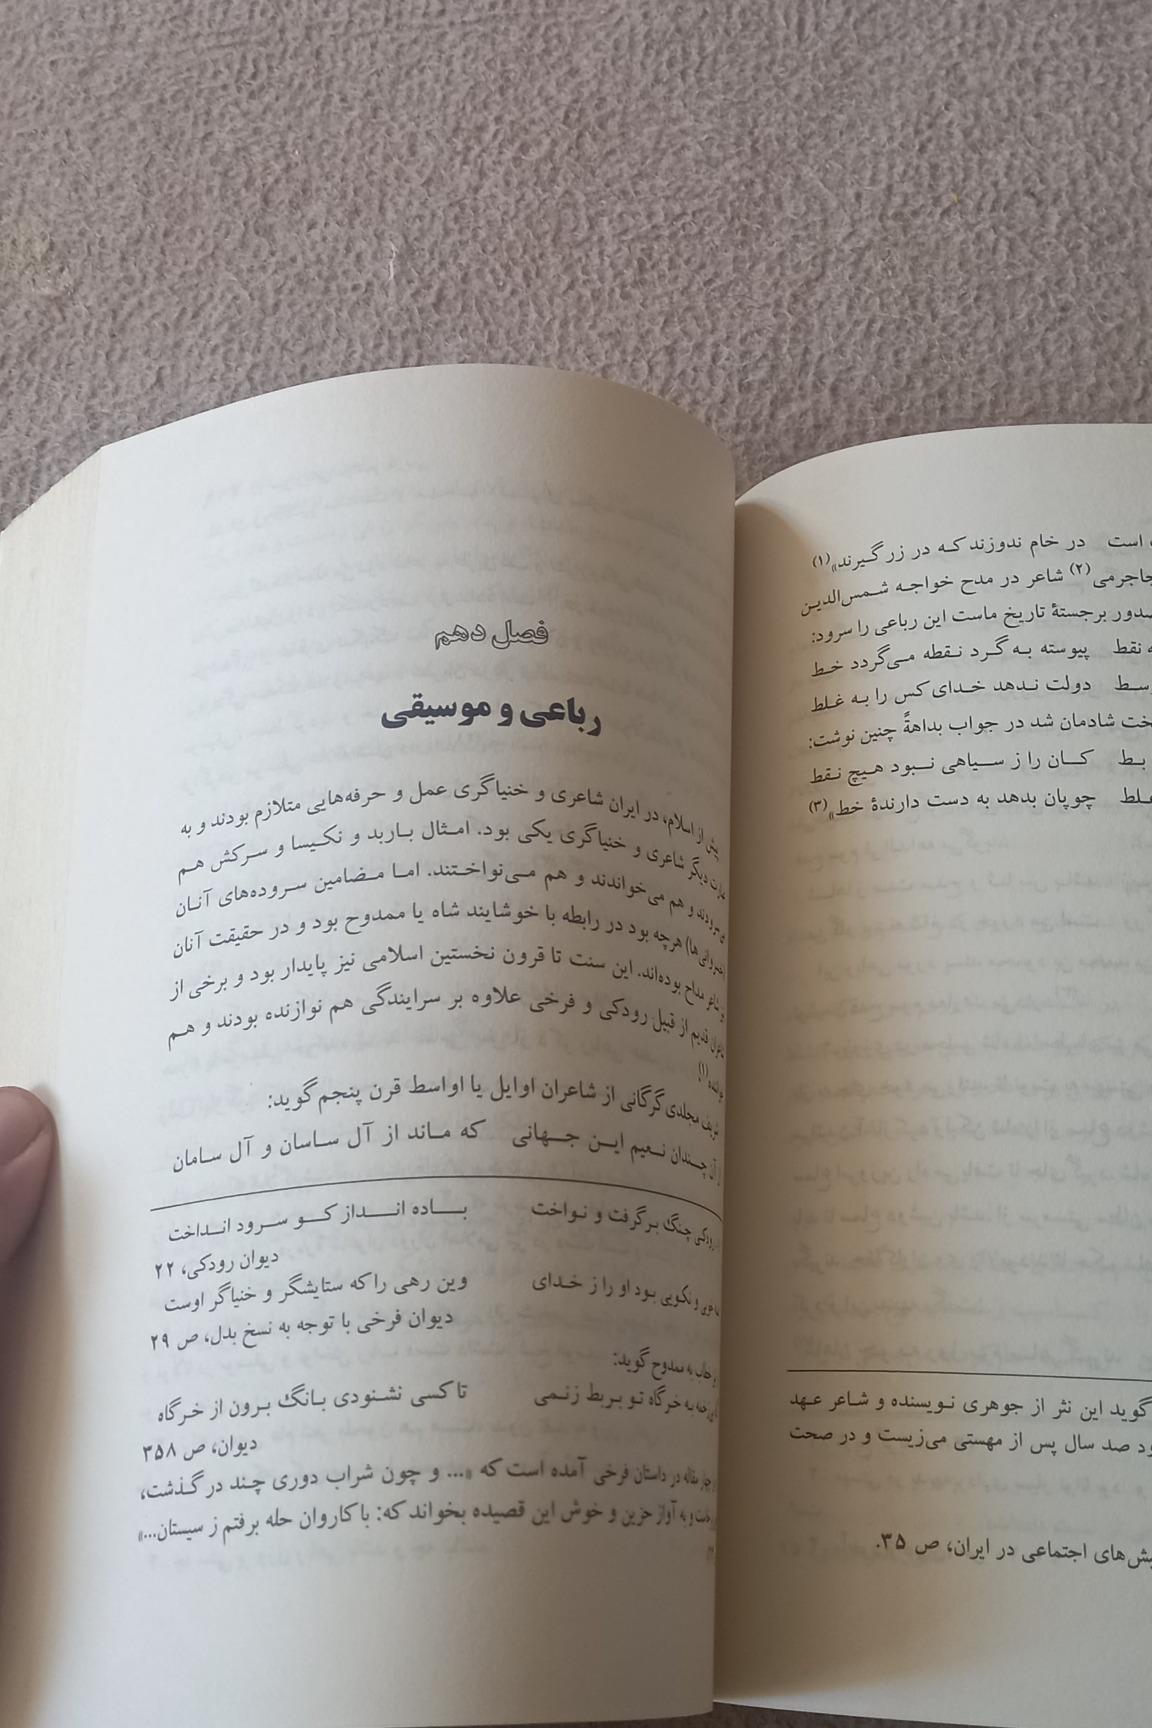 است در خام ندوزند که در زر گیرند»(۱)
جاجرمی(۲) شاعر در مدح خواجه شمس‌الدین
صدور برجستهٔ تاریخ ماست این رباعی را سرود:
نقط پیوسته به گرد نقطه می‌گردد خط
وسط دولت ندهد خدای کس را به غلط
شادمان شد در جواب بداههً چنین نوشت:
بط کان را ز سیاهی نبود هیچ نقط
غلط چوپان بدهد به دست دارندهٔ خط»(۳)
گوید این نثر از جوهری نویسنده و شاعر عهد
صد سال پس از مهستی می‌زیست و در صحت
اجتماعی در ایران، ص ۳۵.
فصل دهم
رباعی و موسیقی
پیش از اسلام، در ایران شاعری و خنیاگری عمل و حرفه‌هایی متلازم بودند و به
عبارت دیگر شاعری و خنیاگری یکی بود. امثال باربد و نکیسا و سرکش هم
می‌سرودند و هم می‌خواندند و هم می‌نواختند. اما مضامین سروده‌های آنان
(خسروانی‌ها) هرچه بود در رابطه با خوشایند شاه یا ممدوح بود و در حقیقت آنان
شاعر مداح بوده‌اند. این سنت تا قرون نخستین اسلامی نیز پایدار بود و برخی از
شاعران قدیم از قبیل رودکی و فرخی علاوه بر سرایندگی هم نوازنده بودند و هم
خواننده(۱)
شریف مجلدی گرگانی از شاعران اوایل یا اواسط قرن پنجم گوید:
از آن چندان نعیم این جهانی که ماند از آل ساسان و آل سامان
رودکی چنگ برگرفت و نواخت باده انداز کو سرود انداخت
دیوان رودکی، ۲۲
و نکویی بود او را ز خدای وین رهی را که ستایشگر و خنیاگر اوست
دیوان فرخی با توجه به نسخ بدل، ص ۲۹
خطاب به ممدوح گوید:
به خرگاه تو بربط زنمی تا کسی نشنودی بانگ برون از خرگاه
دیوان، ص ۳۵۸
چهار مقاله در داستان فرخی آمده است که «... و چون شراب دوری چند در گذشت،
و به آواز حزین و خوش این قصیده بخواند که: با کاروان حله برفتم ز سیستان...»